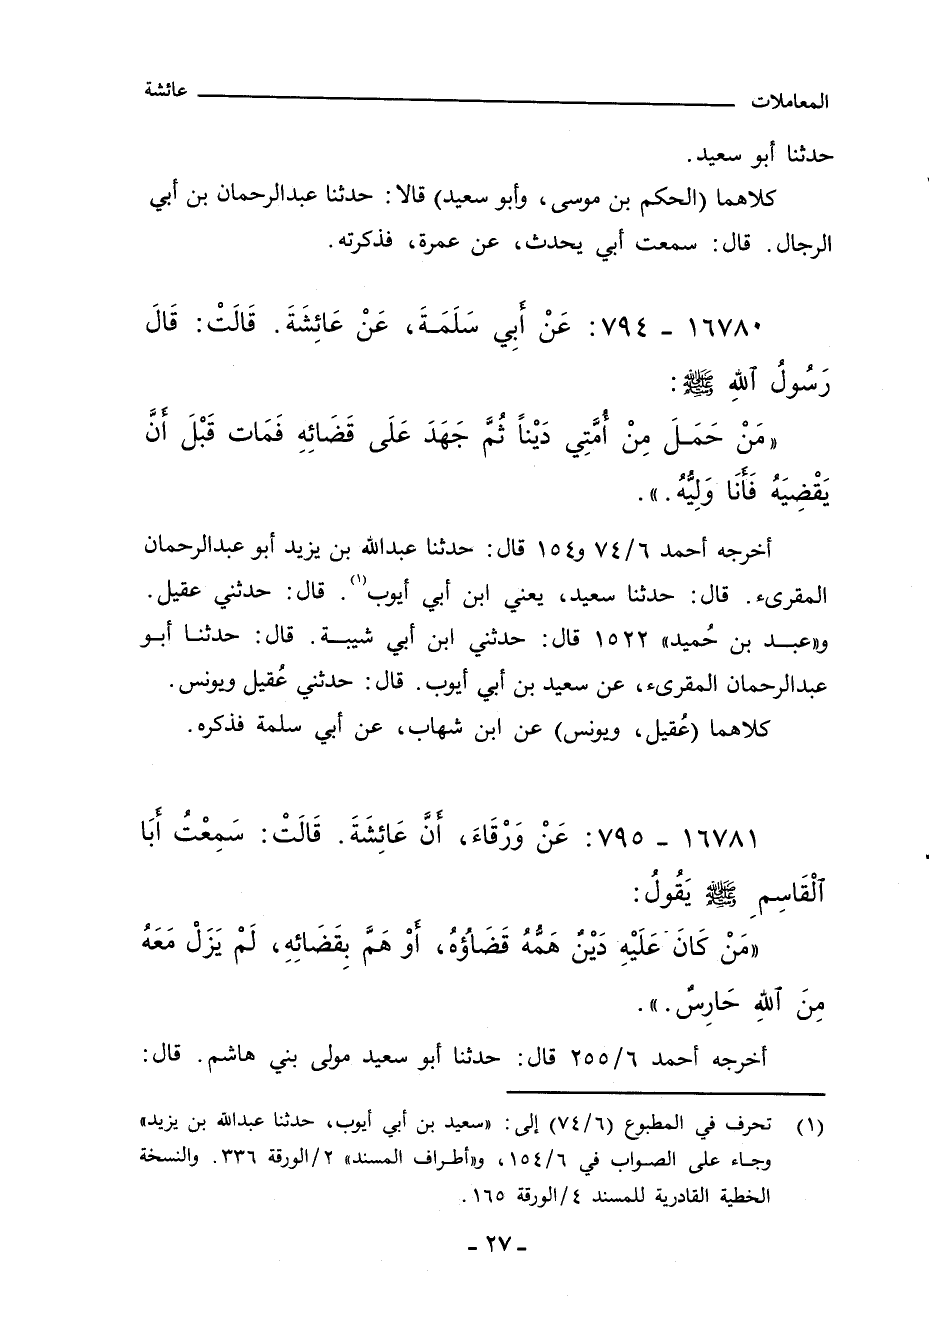 المعاملات ــــــ عائشة
حدثنا أبو سعيد.
كلاهما (الحكم بن موسى، وأبو سعيد) قالا: حدثنا عبدالرحمان بن أبي
الرجال. قال: سمعت أبي يحدث، عن عمرة، فذكرته.
١٦٧٨٠ - ٧٩٤: عَنْ أَبِي سَلَمَةَ، عَنْ عَائِشَةَ. قَالَتْ: قَالَ
رَسُولُ ٱللهِ ﷺ:
«مَنْ حَمَلَ مِنْ أُمَّتِي دَيْناً ثُمَّ جَهَدَ عَلَى قَضَائِهِ فَمَات قَبْلَ أَنَّ
يَقْضِيَهُ فَأَنَا وَلِيُّهُ.».
أخرجه أحمد ٧٤/٦ و١٥٤ قال: حدثنا عبدالله بن يزيد أبو عبدالرحمان
المقرىء. قال: حدثنا سعيد، يعني ابن أبي أيوب(١). قال: حدثني عقيل.
و«عبد بن حُميد» ١٥٢٢ قال: حدثني ابن أبي شيبة. قال: حدثنا أبو
عبدالرحمان المقرىء، عن سعيد بن أبي أيوب. قال: حدثني عُقيل ويونس.
كلاهما (عُقيل، ويونس) عن ابن شهاب، عن أبي سلمة فذكره.
١٦٧٨١ - ٧٩٥: عَنْ وَرْقَاءَ، أَنَّ عَائِشَةَ. قَالَتْ: سَمِعْتُ أَبَا
ٱلْقَاسِمِ ﷺ يَقُولُ:
«مَنْ كَانَ عَلَيْهِ دَيْنٌ هَمُّهُ قَضَاؤُهُ، أَوْ هَمَّ بِقَضَائِهِ، لَمْ يَزَلْ مَعَهُ
مِنَ ٱللهِ حَارِسٌ.».
أخرجه أحمد ٢٥٥/٦ قال: حدثنا أبو سعيد مولى بني هاشم. قال:
(١) تحرف في المطبوع (٧٤/٦) إلى: «سعيد بن أبي أيوب، حدثنا عبدالله بن يزيد»
وجاء على الصواب في ١٥٤/٦، و«أطراف المسند» ٢/الورقة ٣٣٦. والنسخة
الخطية القادرية للمسند ٤/الورقة ١٦٥.
- ٢٧ -